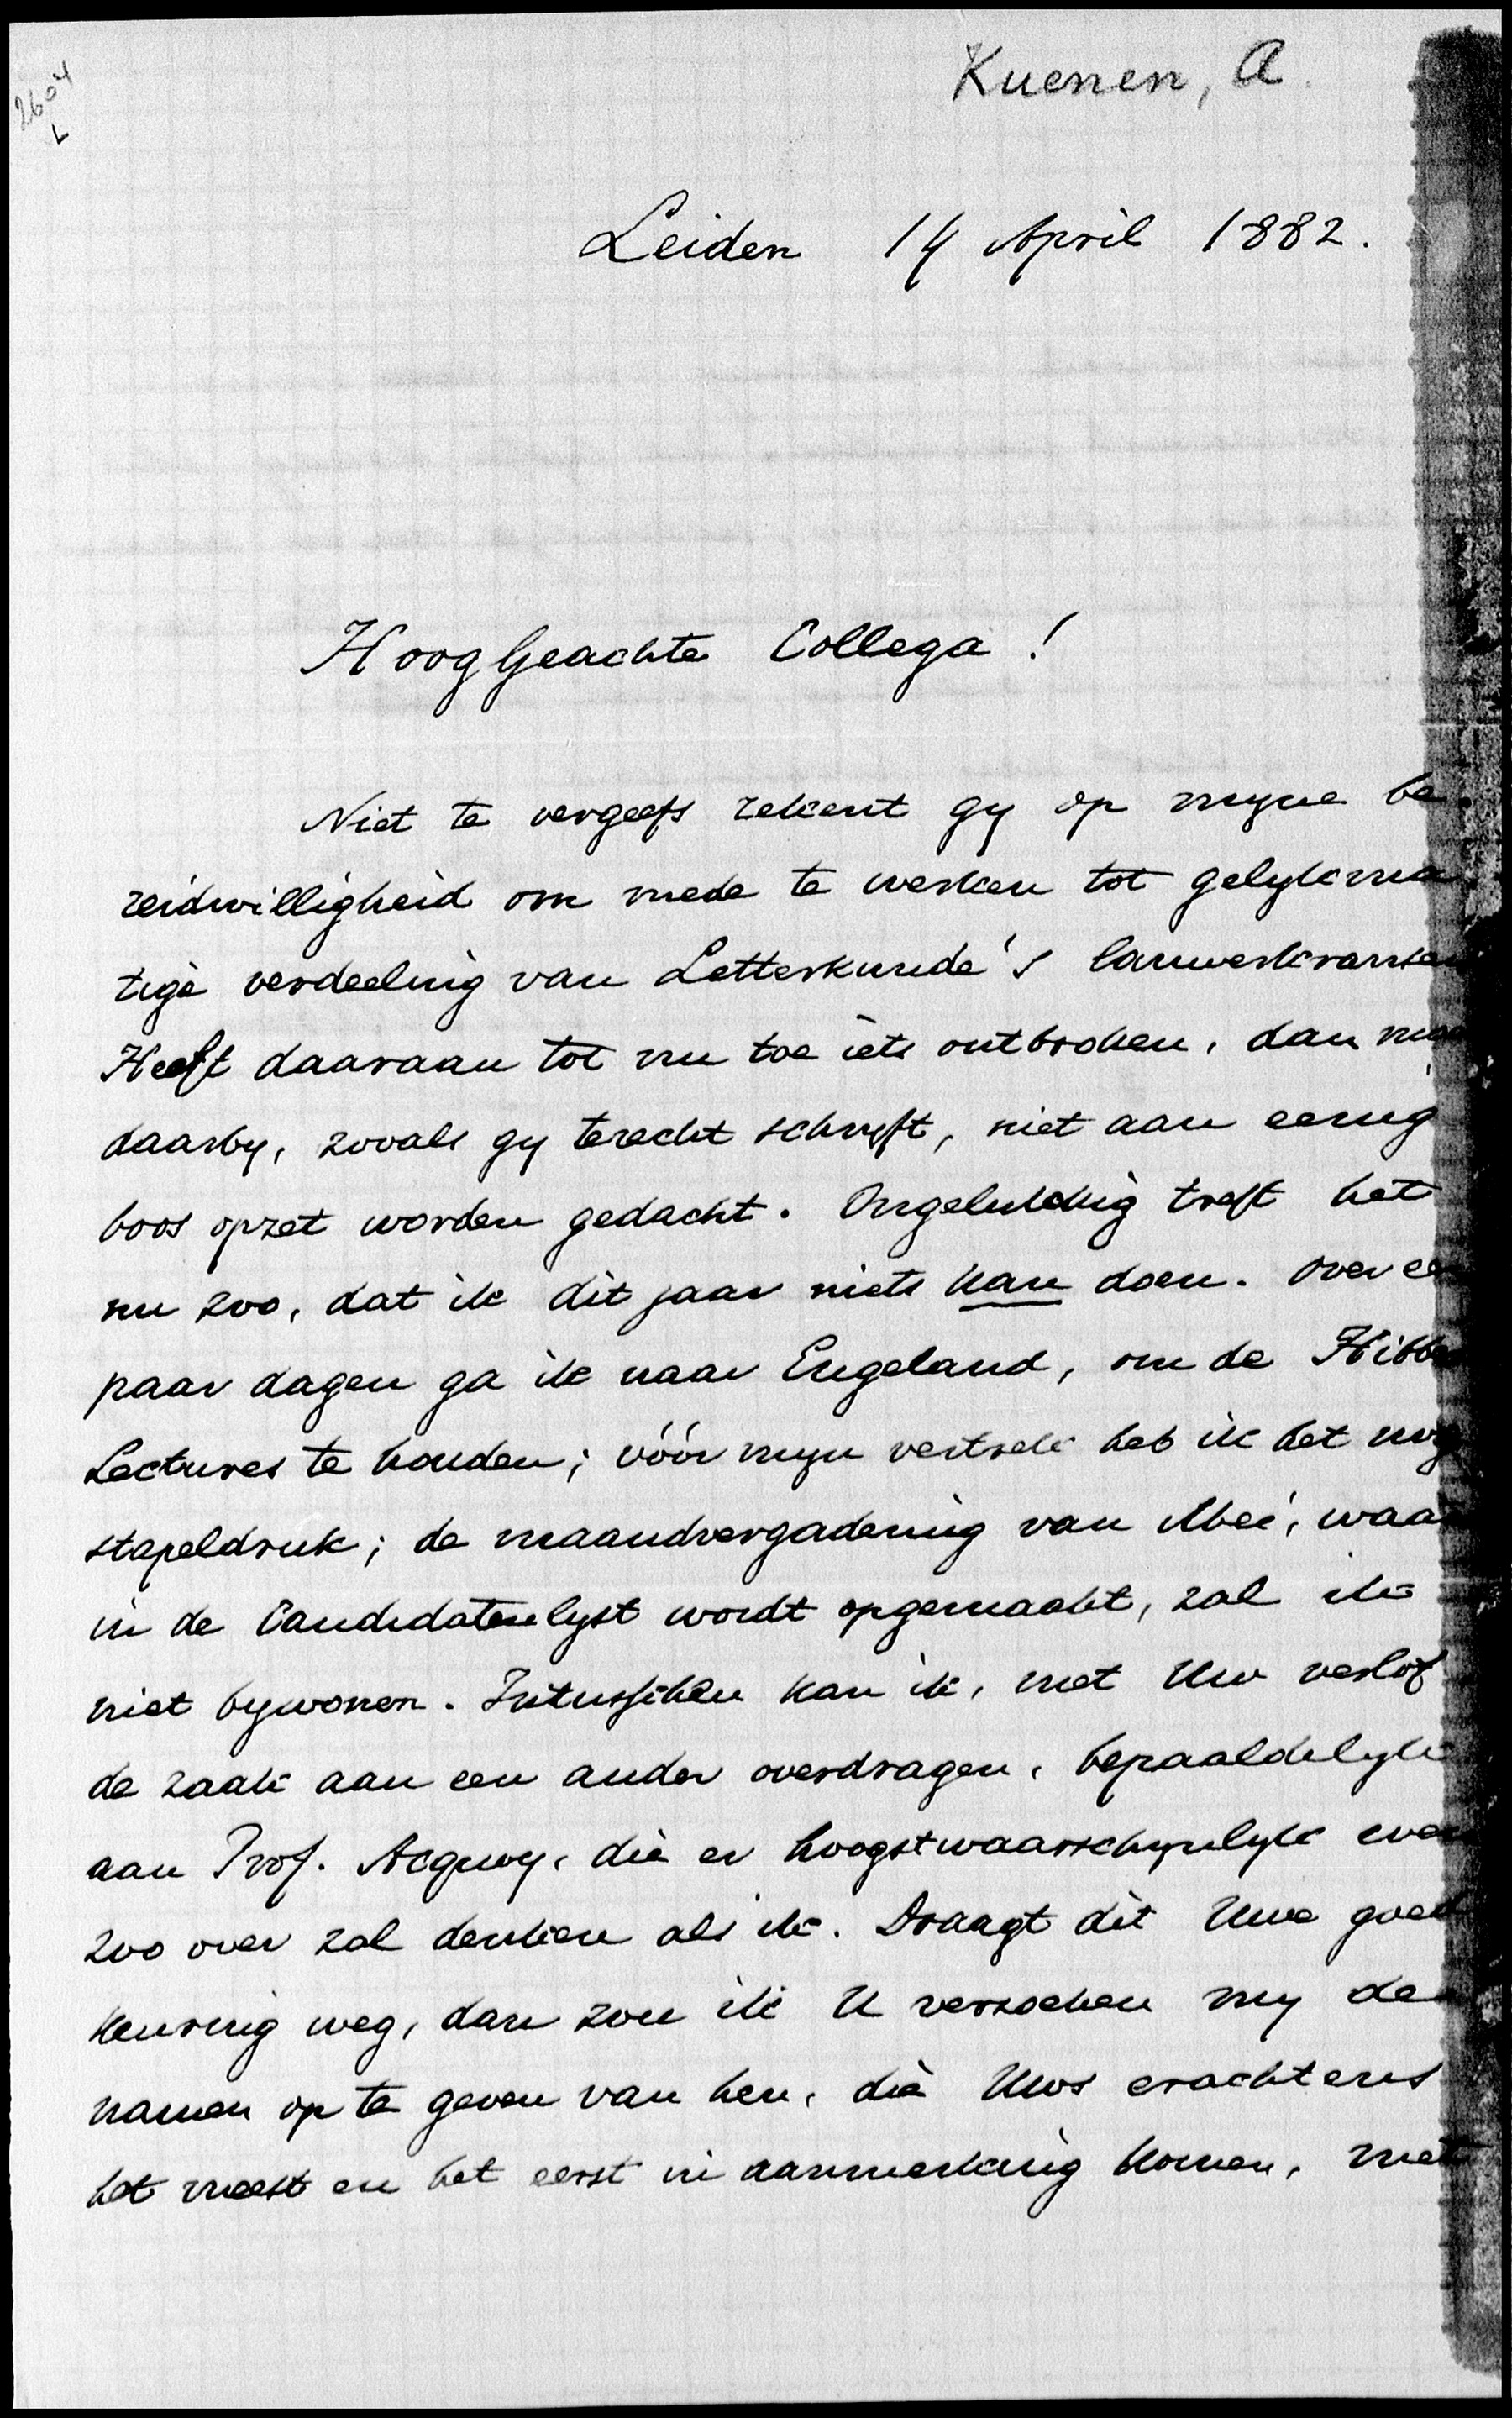 Kuenen, A.
2604
L
Leiden 14 April 1882.
HoogGeachte Collega!
Niet te vergeefs rekent gy op myne be
reidwilligheid om mede te werken tot gelykma
tige verdeeling van Letterkunde's lauwerkransen
Heeft daaraan tot nu toe iets ontbroken, dan mag
daarby, zooals gy terecht schryft, niet aan eenig
boos opzet worden gedacht. Ongelukkig treft het
nu zoo, dat ik dit jaar niets kan doen. Over een
paar dagen ga ik naar Engeland, om de Hibbe
Lectures te houden; vóór myn vertrek heb ik het nog
stapeldruk; de maandvergadering van Mei, waar
in de Candidatenlyst wordt opgemaakt, zal ik
niet bywonen. Intusschen kan ik, met Uw verlof
de zaak aan een ander overdragen, bepaaldelyk
aan Prof. Acquoy, die er hoogstwaarschynlyk even
zoo over zal denken als ik. Draagt dit Uwe goed
keuring weg, dan zou ik U verzoeken my de
namen op te geven van hen, die Uws erachtens
het meest en het eerst in aanmerking komen, met